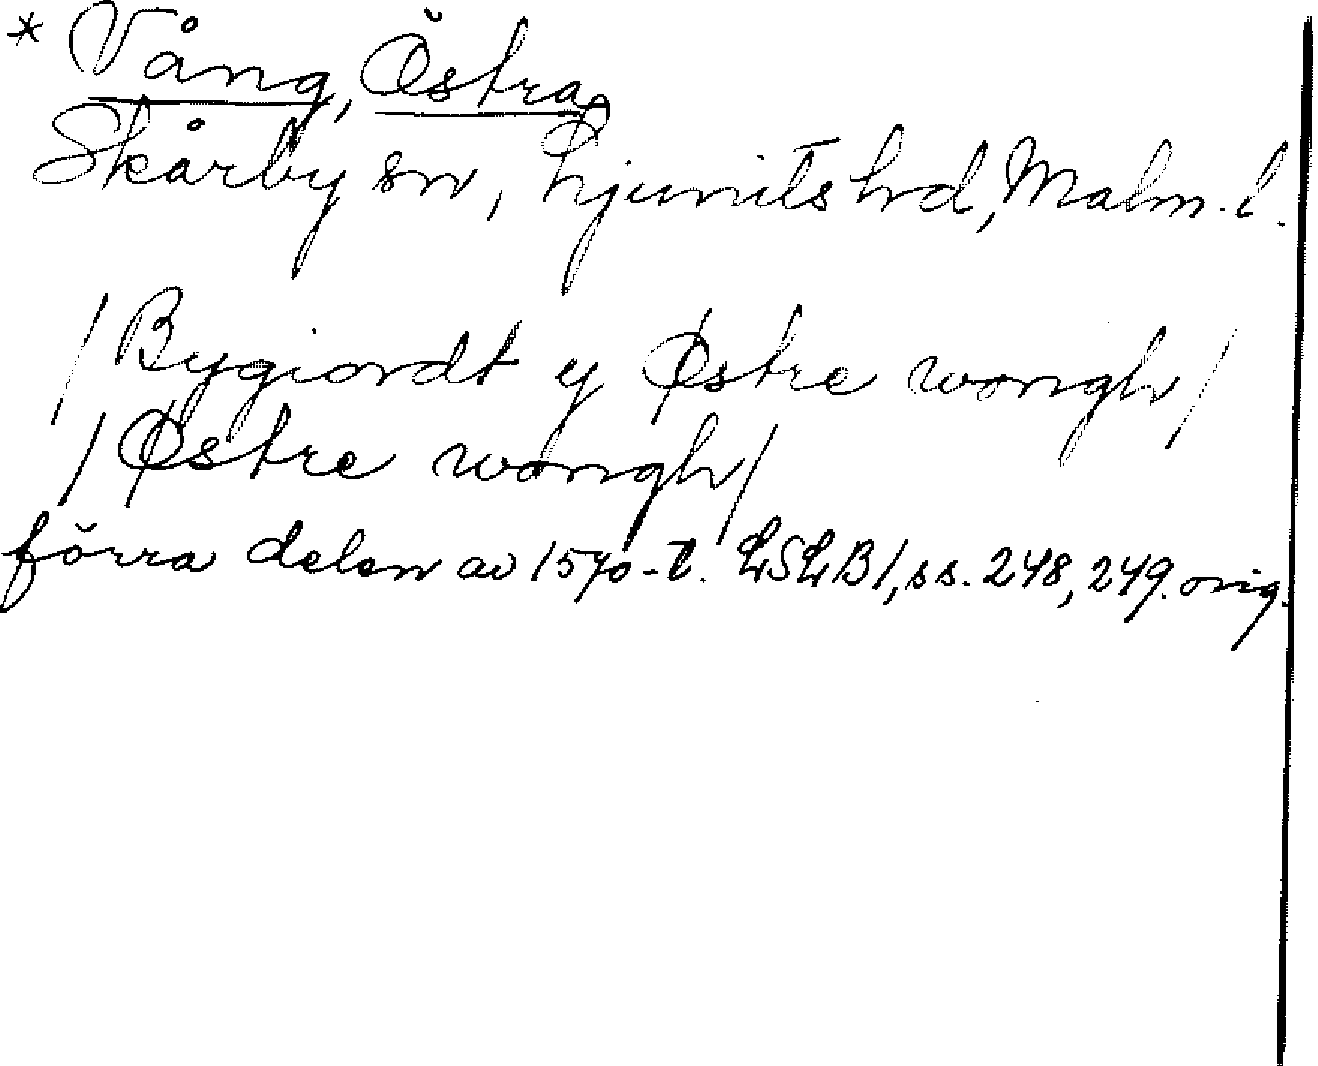 * Vång, Östra,
Skårby sn, Ljunits hrd, Malm. l.
/Bygiordt y Østre wongh/
/Østre wongh/
förra delen av 1570-t. LSLB1, ss. 248, 249. orig.